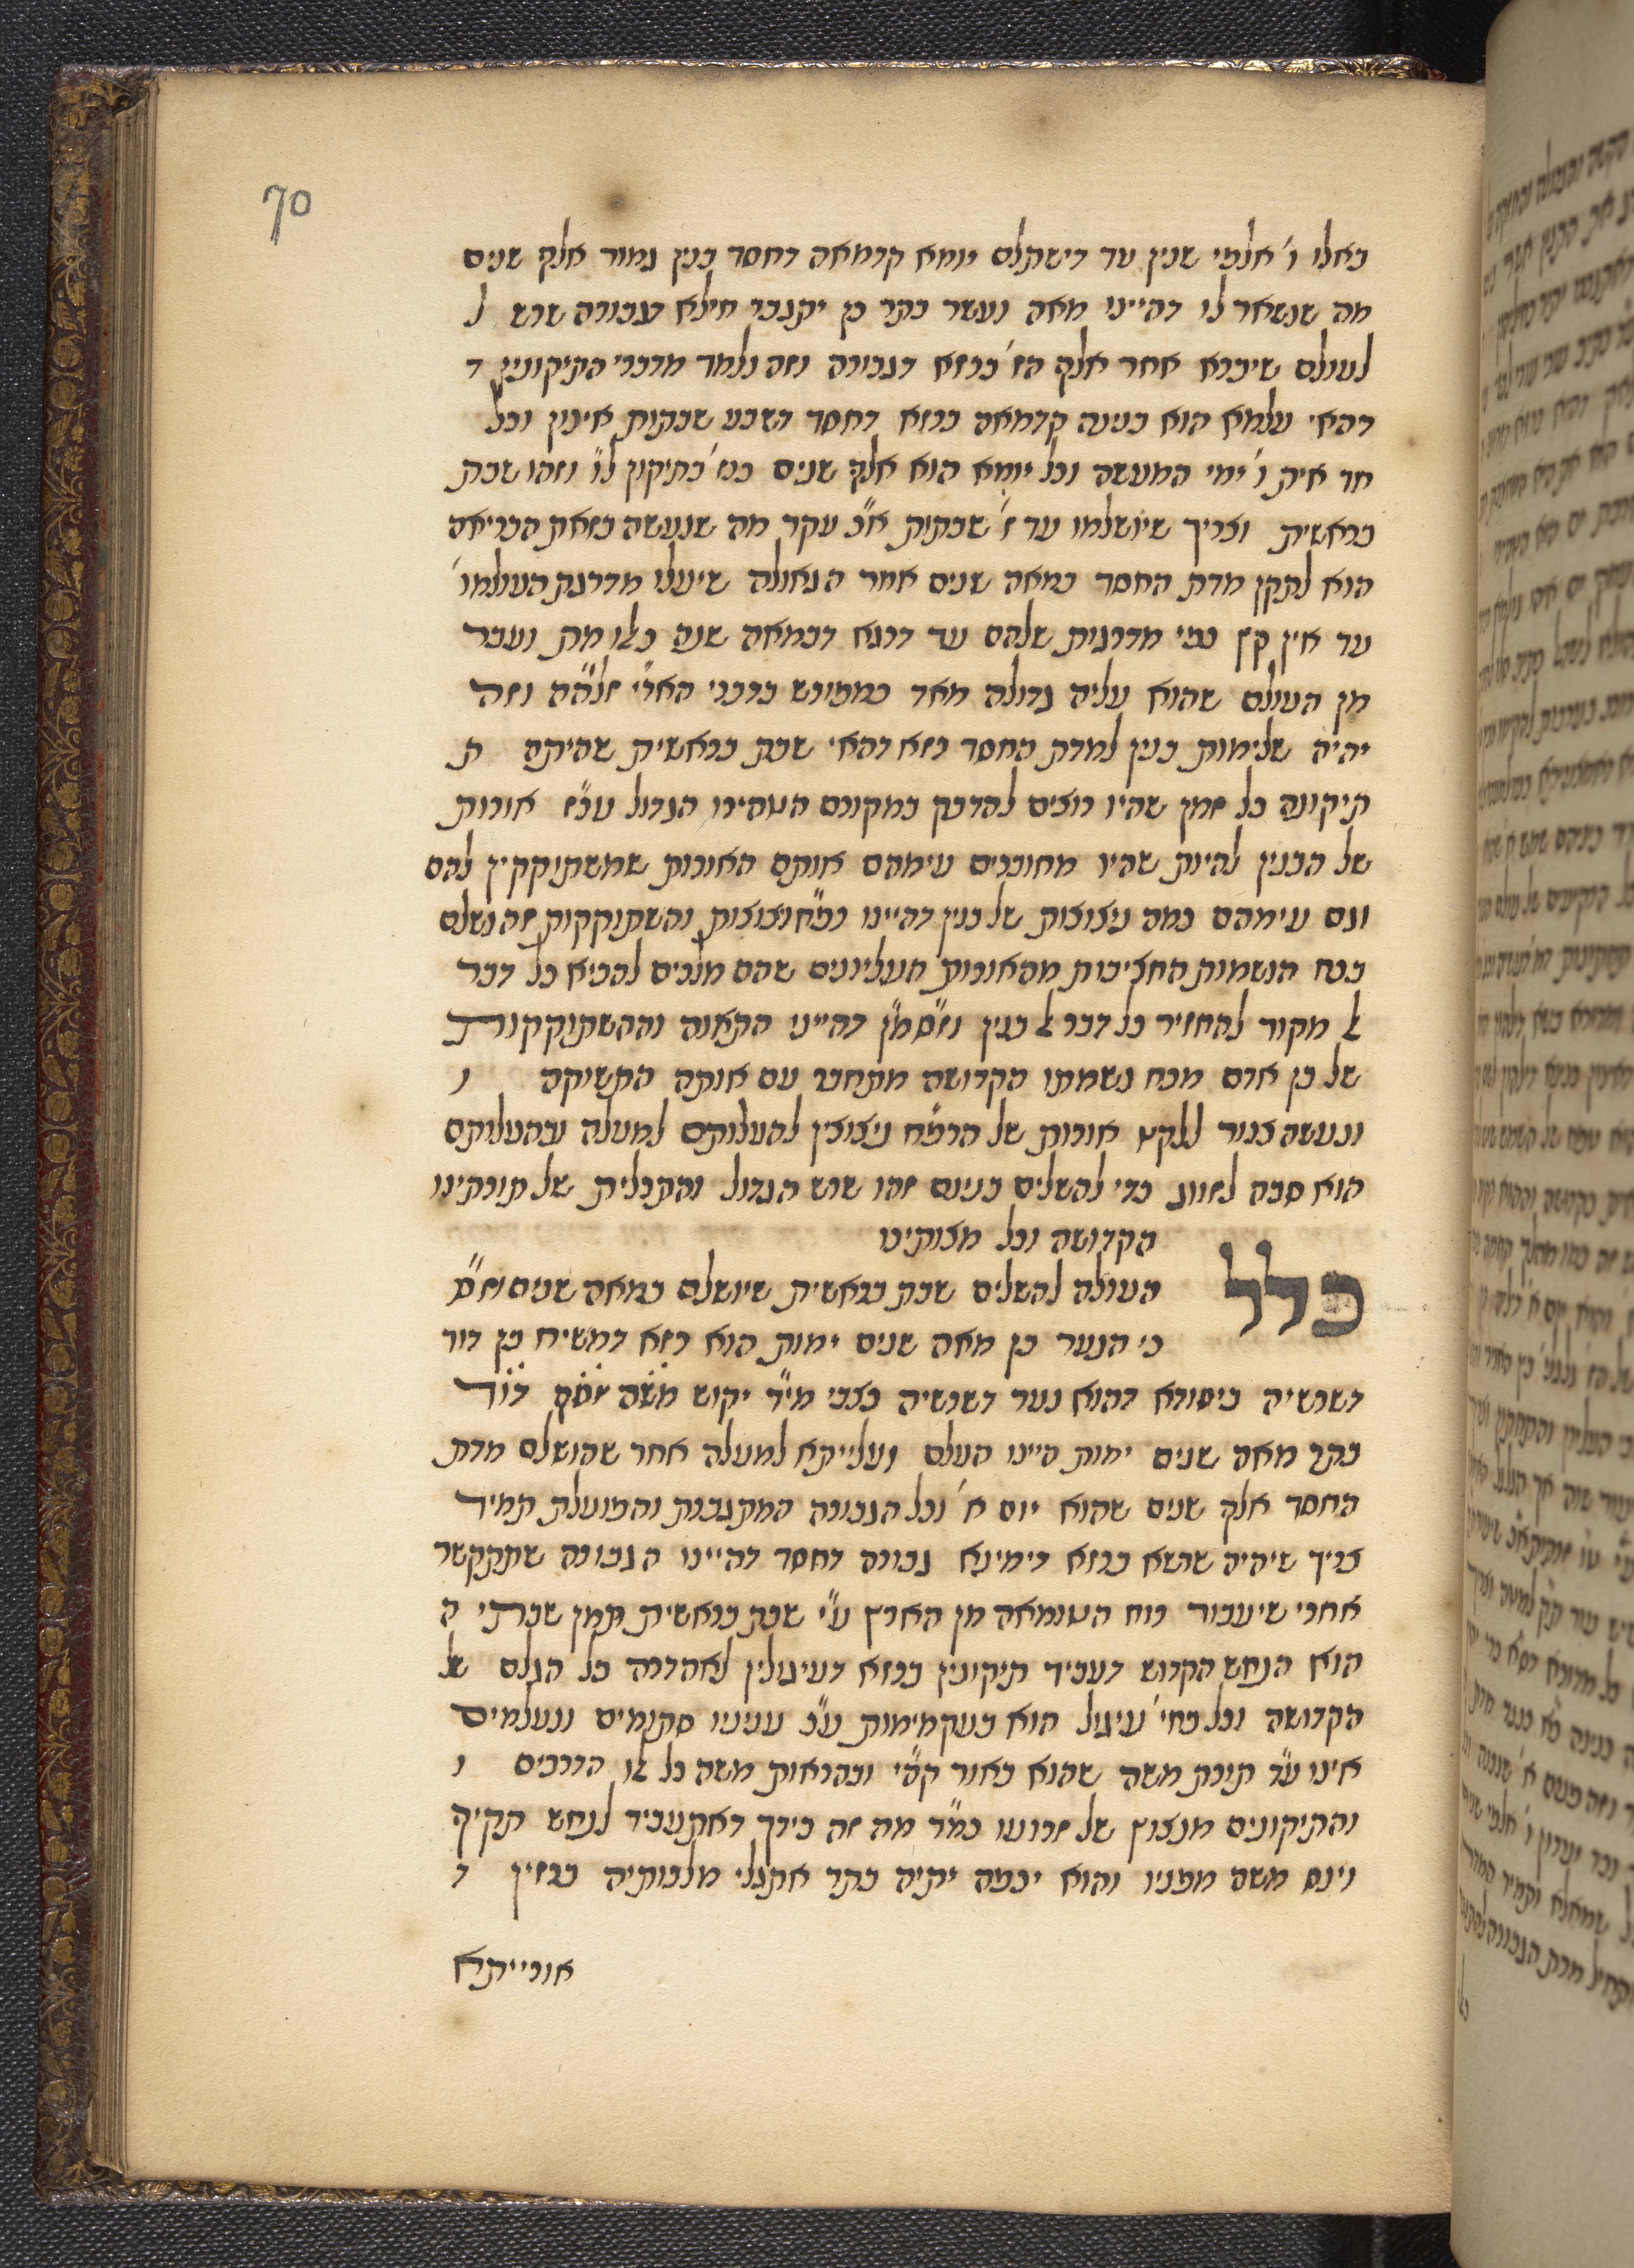 70
באלו ו' אלפי שנין עד דישתלם יומא קדמאה דחסד בנין גמור אלף שנים
מה שנשאר לו דהיינו מאה ועשר בתר כן יתגבר חילא דגבורה שרש ל
לעולם שיברא אחר אלף הז' ברזא דגבורה וזה נלמד מדברי התיקונין ד
דהאי עלמא הוא בנינה קדמאה ברזא דחסד דשבע שבתות אינון וכל
חד אית ו' ימי המעשה וכל יומא הוא אלף שנים כמ' בתיקון ל"ו וזהו שבת
בראשית וצריך שיושלמו עד ז' שבתות א"כ עקר מה שנעשה בזאת הבריאה
הוא לתקן מדת החסד במאה שנים אחר הגאולה שיעלו מדרגת העולמו'
עד אין קץ כפי מדרגות שלהם עד דרגא דבמאה שנה כאלו מת ועבר
מן העולם שהוא עליה גדולה מאד כמפורש בדברי האר"י זלה"ה וזה
יהיה שלימות בנין למדת החסד רזא דהאי שבת בראשית שהיתה ת
תיקונה כל זמן שהיו רוצים להדבק במקורם הטהירו הגדול עכ"ז אורות
של הבנין להיות שהיו מחוברים עימהם אותם האורות שמשתוקקין להם
וגם עימהם כמה ניצוצות של בנין דהיינו רפ"ח ניצוצות והשתוקקות זה נשלם
בכח הנשמות החציבות מהאורות העליונים שהם מלכים להביא כל דבר
ל מקור להחזיר כל דבר ל בנין וז"ס מ"ן דהיינו התאוה וההשתוקקות
של בן אדם מכח נשמתו הקדושה מתחבר עם אותה התשוקה ו
ונעשה צנור ללקט אורות של הרפ"ח ניצוצין להעלותם למעלה ובהעלותם
הוא סבה לזווג כדי להשלים בנינם זהו שרש הגדול והתכלית של תורתינו
הקדושה וכל מצותינו
כלל העולה להשלים שבת בראשית שיושלם במאה שנים וז"ס
כי הנער בן מאה שנים ימות הוא רזא דמשיח בן דוד
דשרשיה ביסודא דהוא נער דשרשיה בצבי מ"ד יקוש משה יוסף דוד
בתר מאה שנים ימות היינו העלם ועלייתא למעלה אחר שהושלם מדת
החסד אלף שנים שהוא יום א' וכל הגבורה המתגברת והפועלת תמיד
צריך שיהיה שרשא ברזא דימינא גבורה דחסד דהיינו הגבורה שתתקשר
אחרי שיעבור רוח הטומאה מן הארץ ע"י שבת בראשית תמן שברתי ה
הוא הנחש הקדוש דעביד תיקונין ברזא דעיגולין לאהדרה כל הגלם של
הקדושה וכל בחי' עיגול הוא בעקמימות ע"כ עניניו סתומים ונעלמים
אינו ע"ד תורת משה שהוא באור קו"י ובהראות משה כל אלו הדרכים ו
והתיקונים מנצוץ של זרועו כמ"ד מה זה בידך דאתעביד לנחש תקיף
וינס משה מפניו והוא יכפה יתיה בתר אתגלי מלכותיה ברזין ד
אורייתא